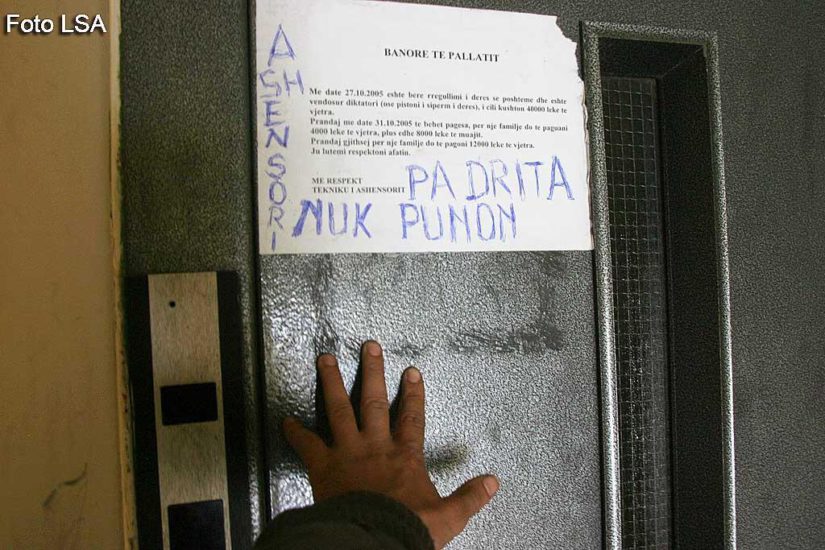 Foto LSA
ASHENSORI
BANORE TE PALLATIT
Me date 27.10.2005 eshte bere rregullimi i deres se poshteme dhe eshte
vendosur diktatori (ose pistoni i siperm i deres), i cili kushton 40000 leke te
vjetra.
Prandaj me date 31.10.2005 te behet pagesa, per nje familje do te paguani
4000 leke te vjetra, plus edhe 8000 leke te muajit.
Prandaj gjithsej per nje familje do te pagoni 12000 leke te vjetra.
Ju lutemi respektoni afatin.
ME RESPEKT
TEKNIKU I ASHENSORIT
PA DRITA
NUK PUNON